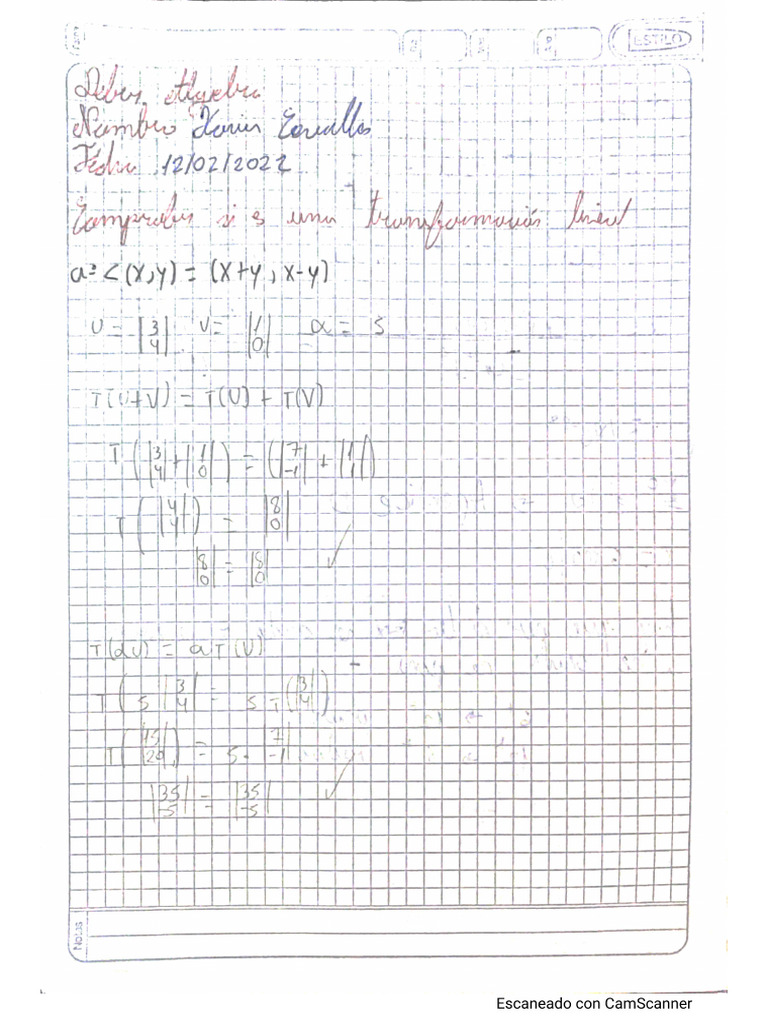 ESTILO
Deber Algebra
Nombre Xavier Cevallos
Fecha 12/02/2022
Comprobar si s una transformación lineal
a= < (x,y) = (x+y, x-y)
U = |3 4| V = |1 0| α = 5
T(U+V) = T(U) + T(V)
T ( |3 4| + |1 0| ) = ( |7 -1| + |1 1| )
T ( |4 4| ) = |8 0|
|8 0| = |8 0| ✓
T(αU) = αT(U)
T ( 5 |3 4| = 5 T ( |3 4| )
T ( |15 20| ) = 5. |7 -1|
|35 -5| = |35 -5| ✓
Notas
Escaneado con CamScanner